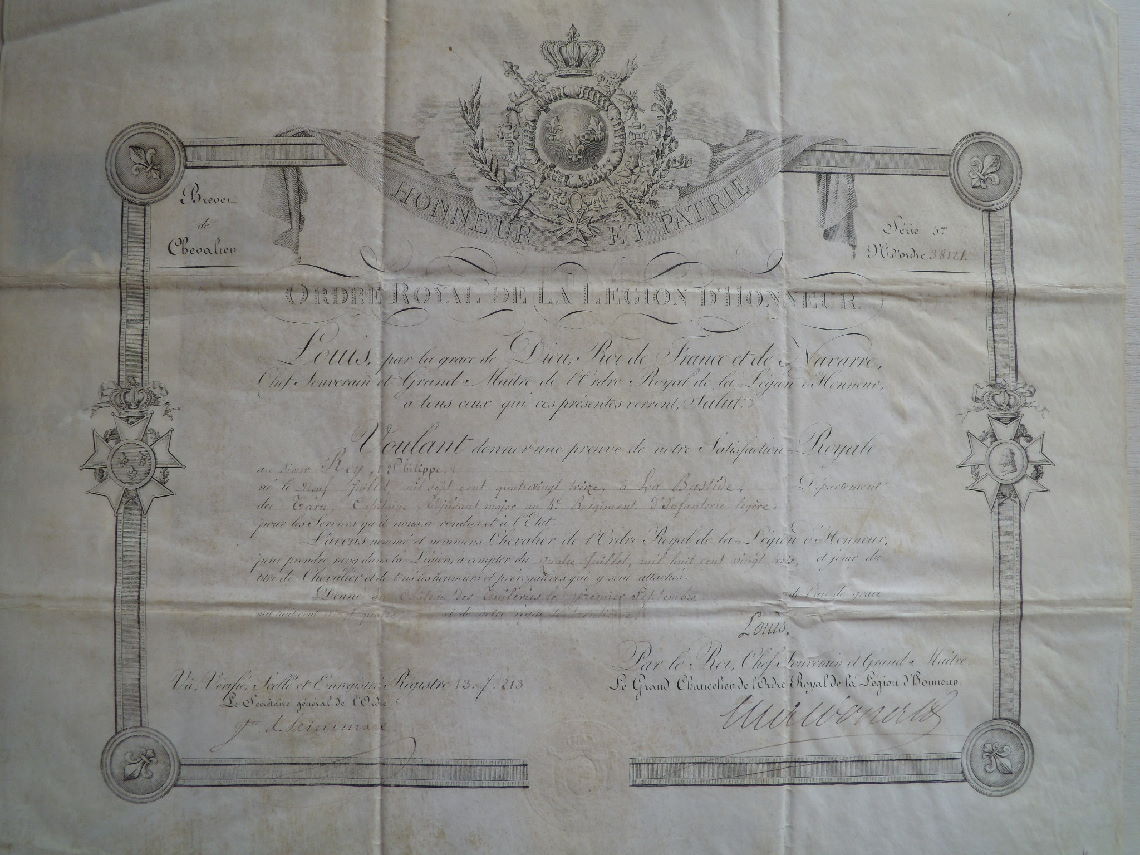 HONNEUR ET PATRIE
Brevet
de
Chevalier
Série
N.º d'ordre
ORDRE ROYAL DE LA LÉGION D'HONNEUR.
Louis, par la grace de Dieu, Roi de France et de Navarre,
Chef Souverain et Grand Maître de l'Ordre Royal de la Légion d'Honneur,
à tous ceux qui ces présentes verront, Salut.
Voulant donner une preuve de notre Satisfaction Royale
au Sieur Rey, Philippe,
né le neuf Juillet mil sept cent quatrevingt treize, à La Bastide, Département
du Tarn, Capitaine Adjudant major au Régiment d'Infanterie légère,
pour les Services qu'il nous a rendus et à l'Etat
L'avons nommé et nommons Chevalier de l'Ordre Royal de la Légion d'Honneur,
pour prendre rang dans la Légion à compter du Juillet, mil huit cent vingt et jouir du
titre de Chevalier et de tous les honneurs et prérogatives qui y sont attachés.
Donné au Château des Tuileries le premier Septembre de l'an de grace
mil huit cent et de notre règne le
Louis.
Par le Roi, Chef Souverain et Grand Maître
Vu, Vérifié, Scellé et Enregistré, Registre 13 f. 213
Le Grand Chancelier de l'Ordre Royal de la Légion d'Honneur
Le Secrétaire général de l'Ordre